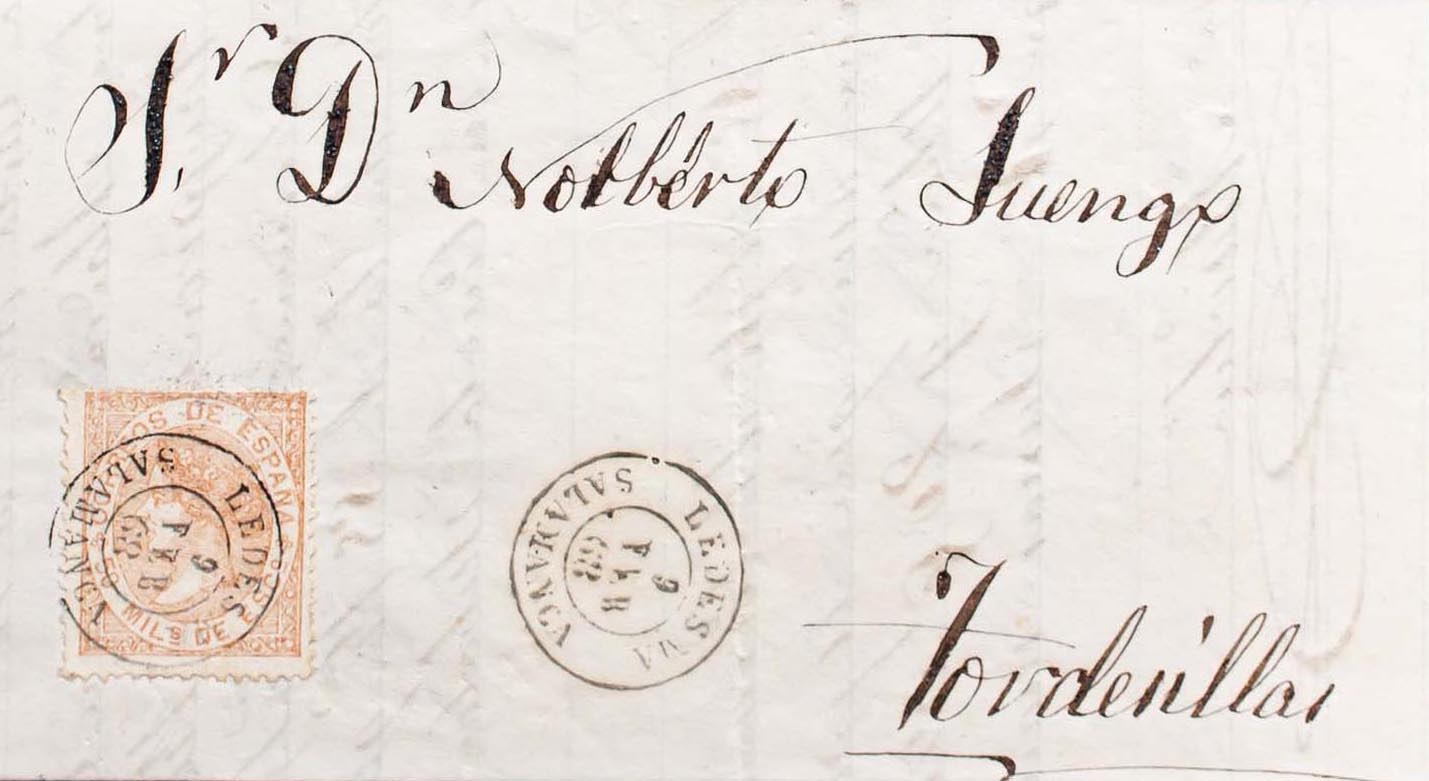 Sr Dn Norberto Luengo
OS DE ESPAÑA
MILS DE
LEDESMA
SALAMANCA
9
FEB
68
LEDESMA
SALAMANCA
9
FEB
68
Tordesillas